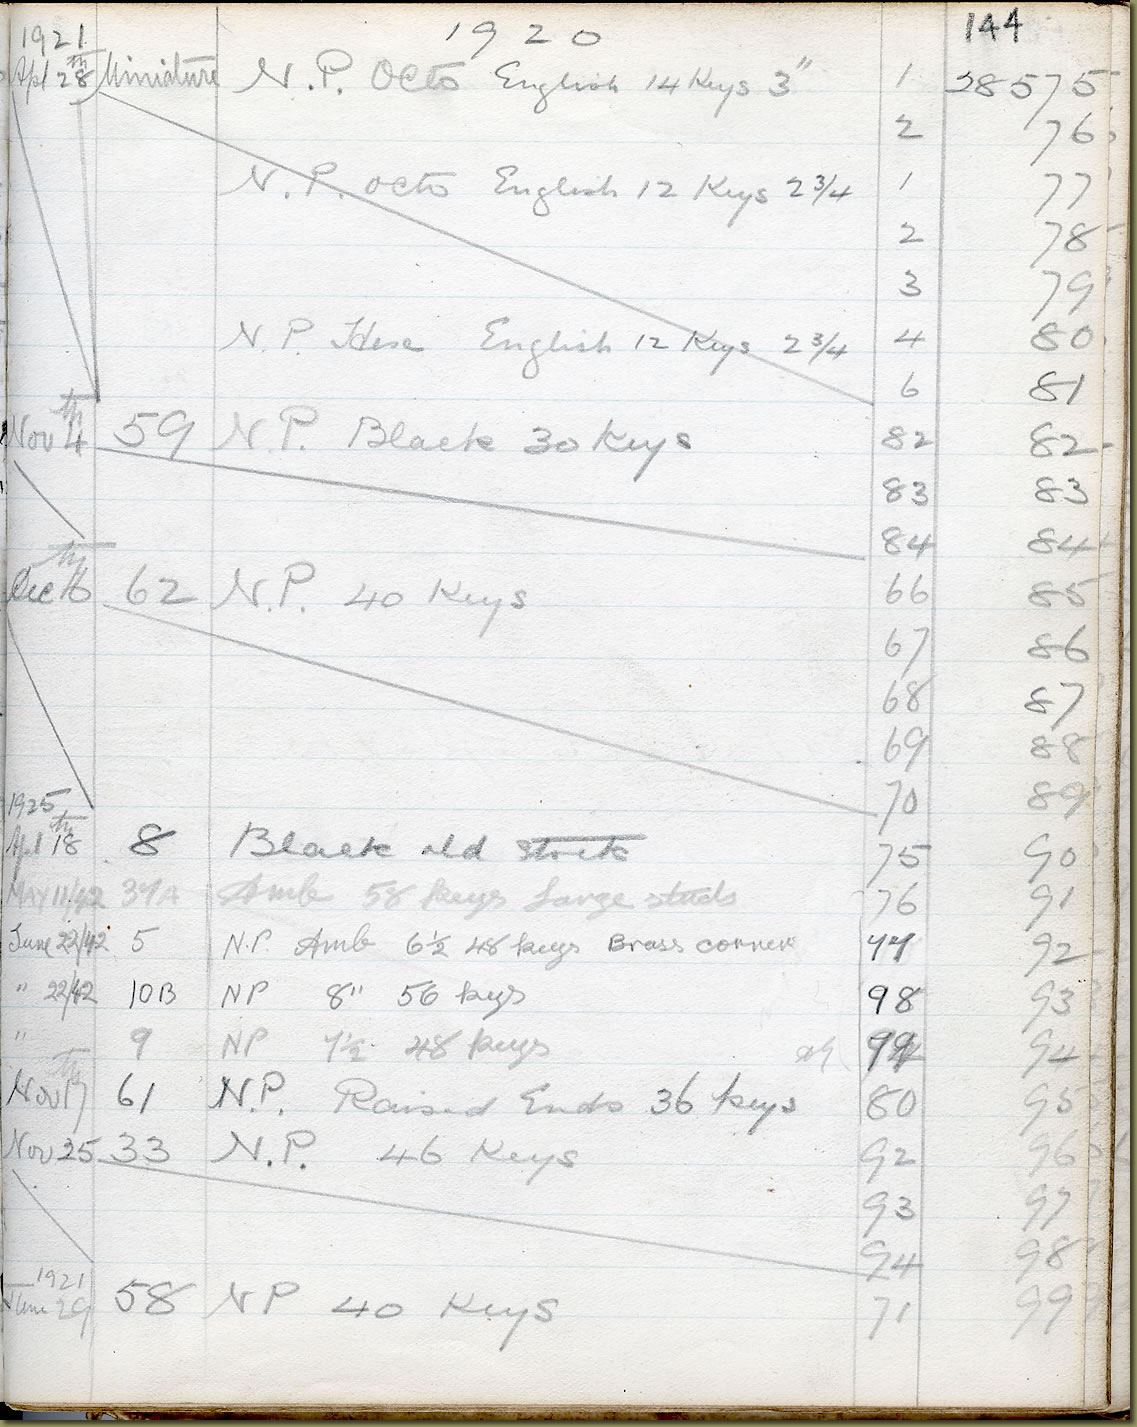 1920 144
1921
Apl 28th Miniature N.P. Octo English 14 Keys 3" 1 28575
2 76
N.P. Octo English 12 Keys 2 3/4 1 77
2 78
3 79
N.P. Hexe English 12 Keys 2 3/4 4 80
6 81
Nov 4th 59 N.P. Black 30 Keys 82 82
83 83
84 84
Dec 16th 62 N.P. 40 Keys 66 85
67 86
68 87
69 88
70 89
1925
Apl 18th 8 Black old stock 75 90
MAY 11/42 39A Amb 58 keys Large studs 76 91
June 22/42 5 N.P. Amb 6 1/2 48 keys Brass corner 77 92
" 22/42 10B NP 8" 56 keys 98 93
" 9 NP 7 1/2 48 keys 94
Nov 17th 61 N.P. Raised Ends 36 keys 80 95
Nov 25 33 N.P. 46 Keys 92 96
93 97
94 98
1921
June 29 58 NP 40 Keys 71 99